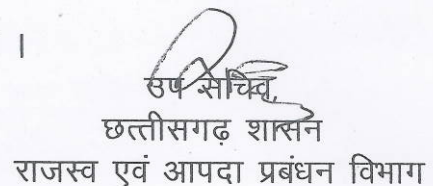 ।
उप सचिव,
छत्तीसगढ़ शासन
राजस्व एवं आपदा प्रबंधन विभाग